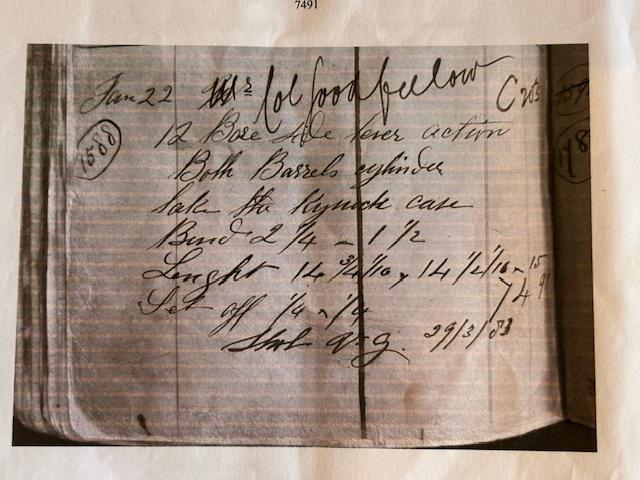 7491
Jan 22 Mr Col Goodfellow C 203
1588
12 Bore side lever action
Both Barrels cylinder
take the Kynock case
Bend 2 1/4 - 1 1/2
Lenght 14 3/4/16 x 14 1/2/16 - 15
Set off 1/4 x 1/4
7491
Shot 29/3/83